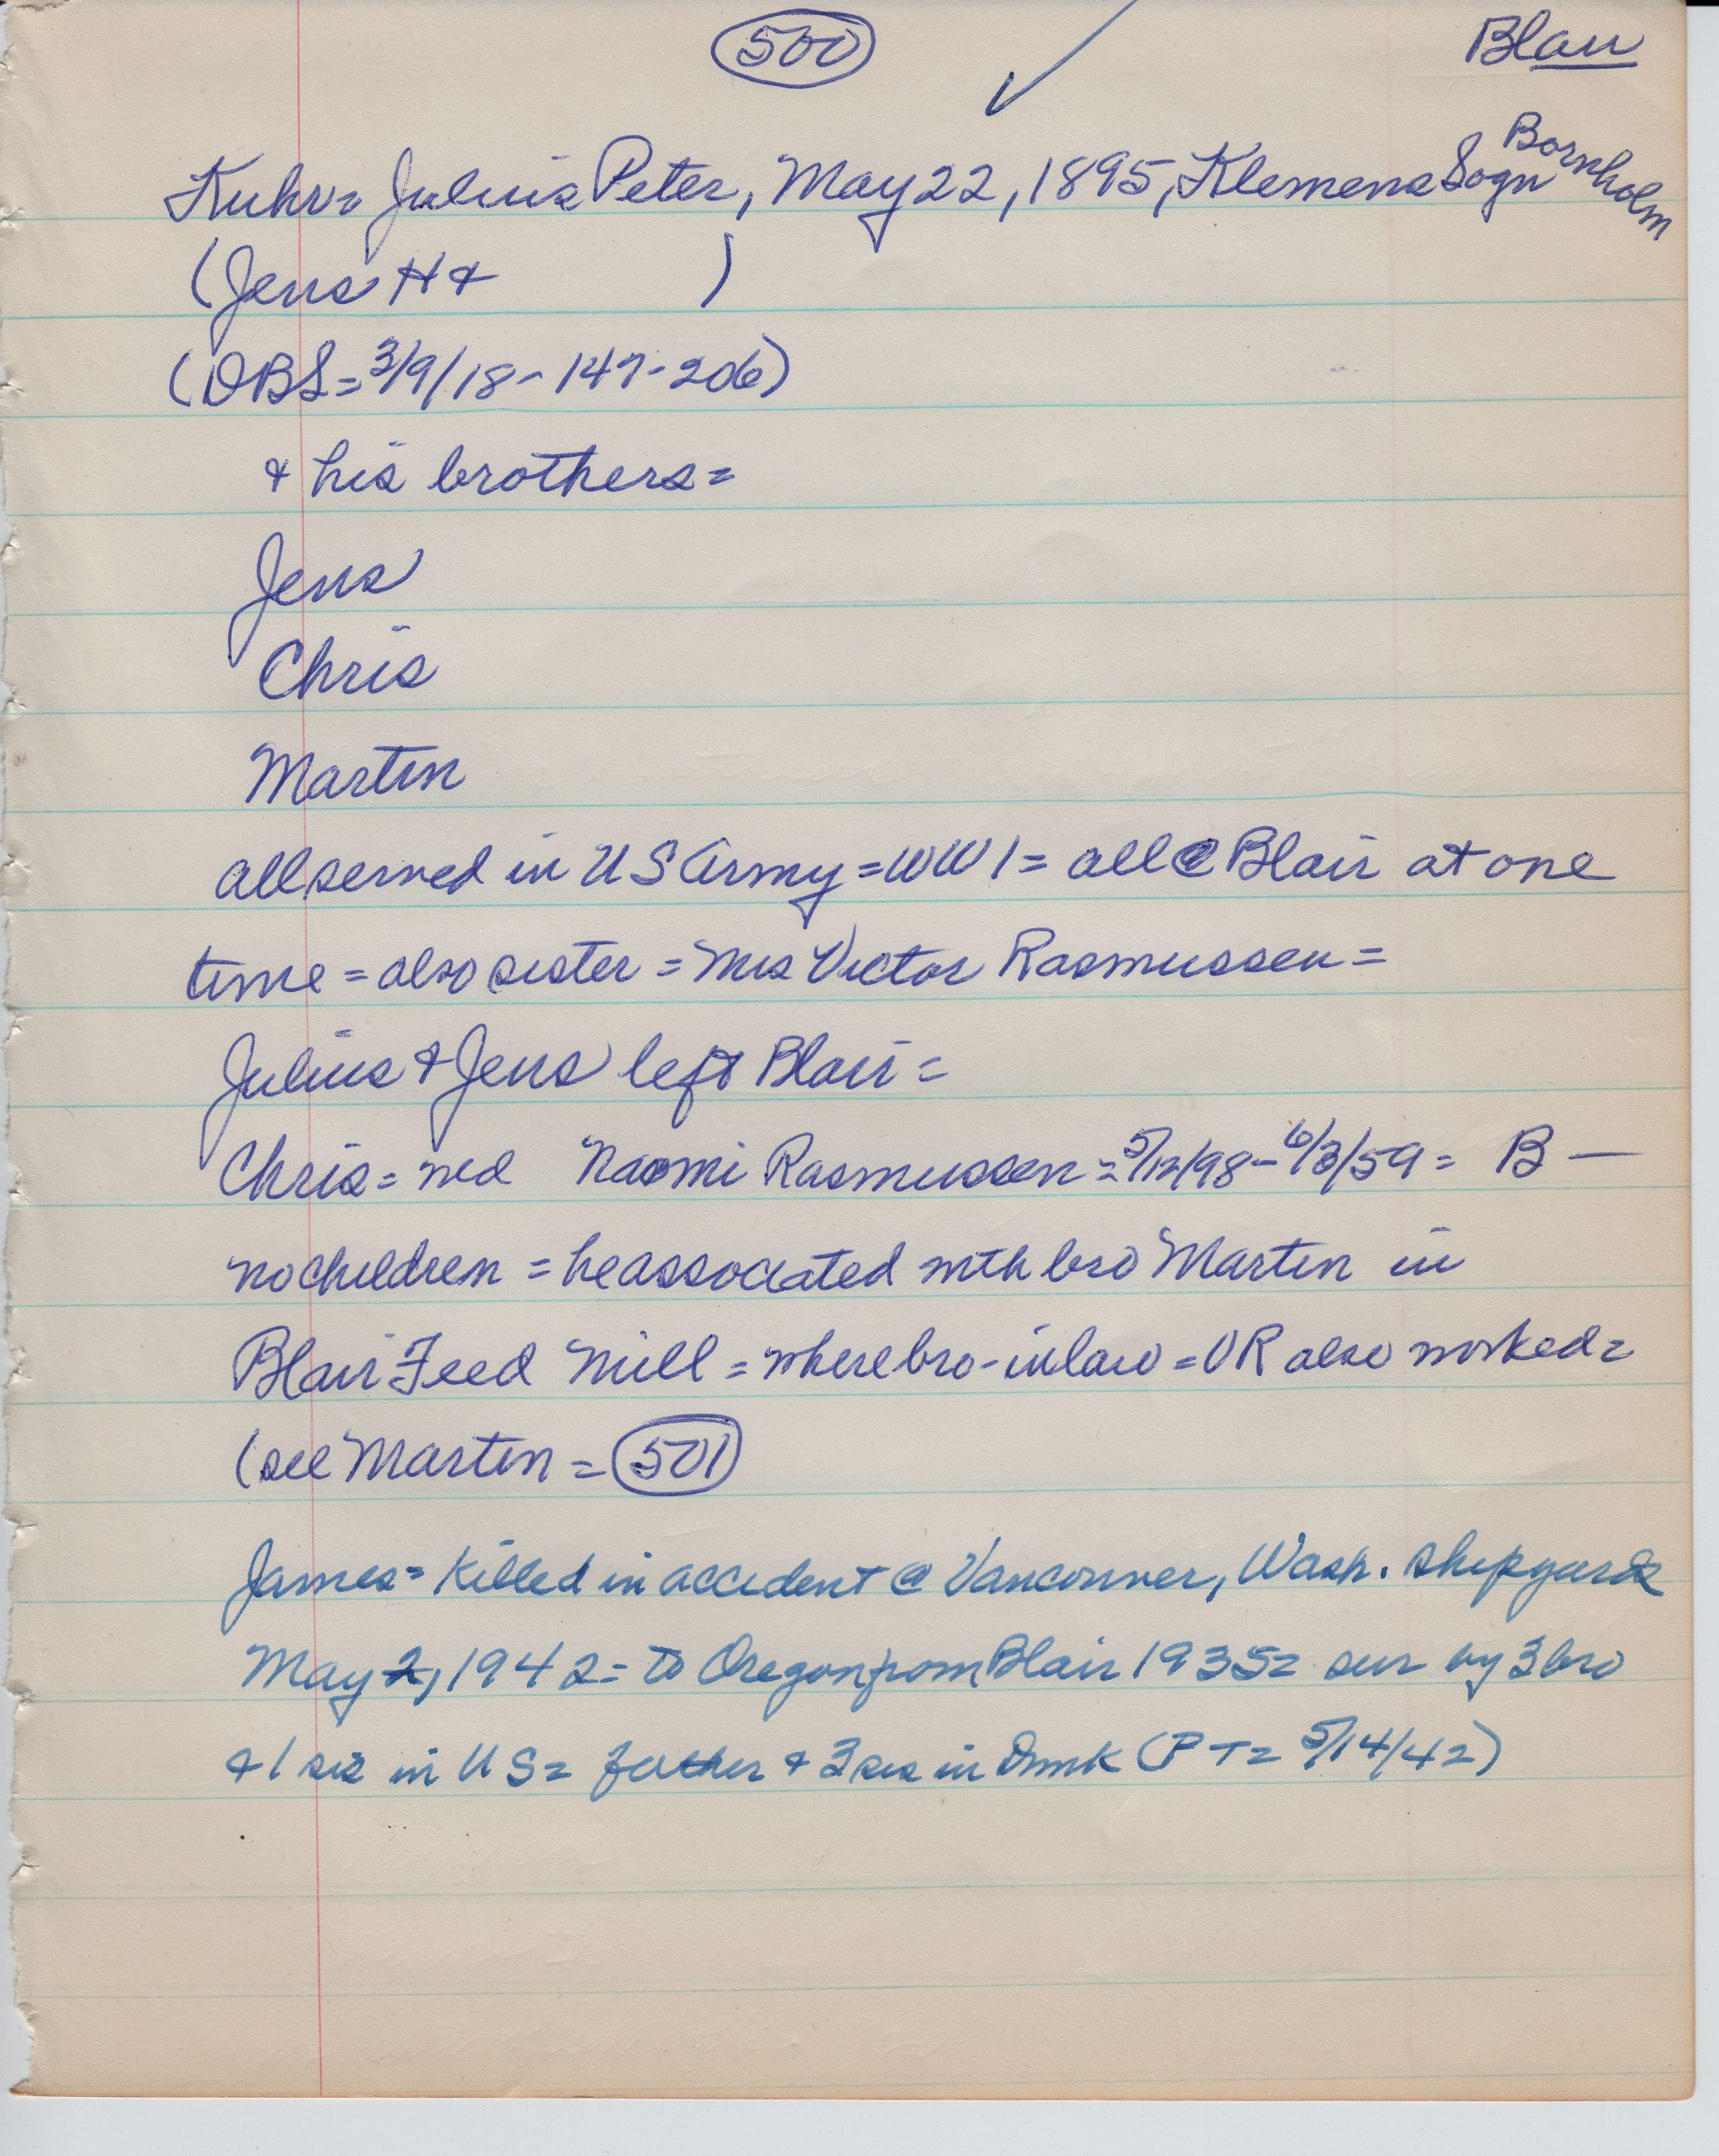 500
Blair
Kuhr= Julius Peter, May 22, 1895, Klemens Sogn Bornholm
(Jens H & )
(DBS= 3/9/18- 147-206)
& his brothers=
Jens
Chris
Martin
all served in US Army = WW1 = all @ Blair at one
time = also sister = Mrs Victor Rasmussen =
Julius & Jens left Blair =
Chris = md Naomi Rasmussen = 5/12/98 - 6/3/59 = B —
no children = he associated with bro Martin in
Blair Feed Mill = where bro-in law = VR also worked =
(see Martin = 501
James = Killed in accident @ Vancouver, Wash. Shipyards
May 2, 1942 = to Oregon from Blair 1935 = sur by 3 bro
& 1 sis in US = father & 3 sis in Dnmk (PT = 5/14/42)